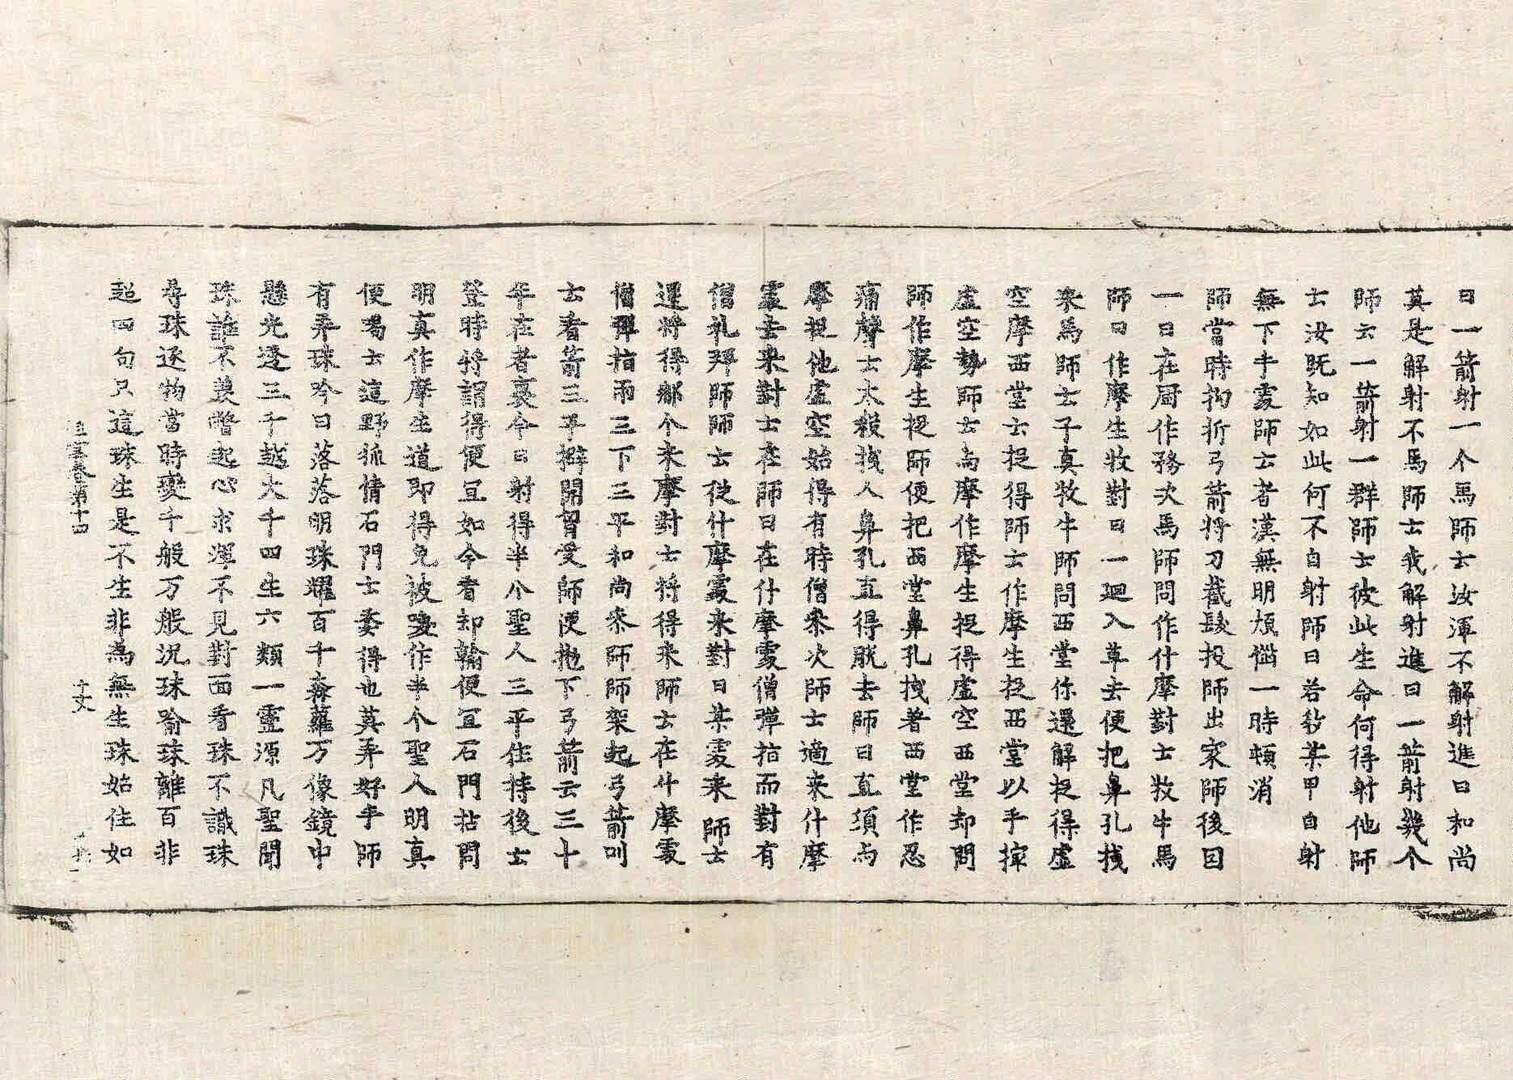 曰一箭射一个馬師云汝渾不解射進曰和尚
莫是解射不馬師云我解射進曰一箭射幾个
師云一箭射一群師云彼此生命何得射他師
云汝既知如此何不自射師曰若教某甲自射
無下手處師云者漢無明煩惱一時頓消
師當時拗折弓箭將刀截髮投師出家師後因
一日在厨作務次馬師問作什摩對云牧牛馬
師曰作摩生牧對曰一迴入草去便把鼻孔拽
來馬師云子真牧牛師問西堂你還解捉得虛
空摩西堂云捉得師云作摩生捉西堂以手撮
虛空勢師云与摩作摩生捉得虛空西堂却問
師作摩生捉師便把西堂鼻孔拽著西堂作忍
痛聲云太殺拽人鼻孔直得脫去師曰直須与
摩捉他虛空始得有時僧參次師云適來什摩
處去來對云在師曰在什摩處僧彈指而對有
僧礼拜師師云從什摩處來對曰某處來師云
還將得郍个來摩對云將得來師云在什摩處
僧彈指兩三下三平和尚參師師架起弓箭叫
云看箭三平擗開胷受師便抛下弓箭云三十
年在者裏今日射得半个聖人三平住持後云
登時將謂得便宜如今看却輸便宜石門拈問
明真作摩生道即得免被喚作半个聖人明真
便喝云這野狐情石門云委得也莫弄好手師
有弄珠吟曰落落明珠耀百千森蘿万像鏡中
懸光透三千越大千四生六類一靈源凡聖聞
珠誰不羨瞥起心求渾不見對面看珠不識珠
尋珠逐物當時變千般万般況珠喻珠離百非
超四句只這珠生是不生非為無生珠始住如
堂卷第十四 十丈